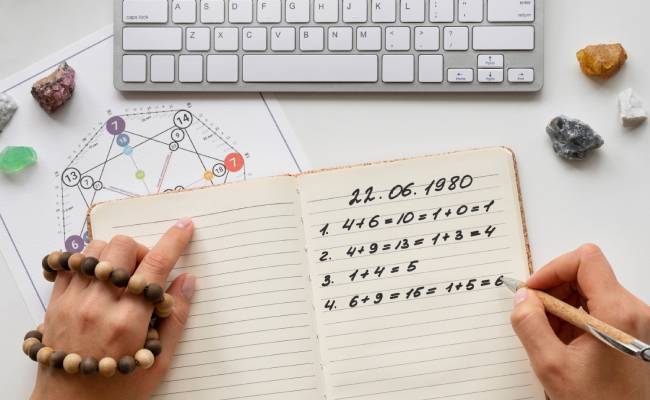 caps lock A S D F G H J K L enter return
Z X C V B N M
22.06.1980
1. 4+6=10=1+0=1
2. 4+9=13=1+3=4
3. 1+4=5
4. 6+9=15=1+5=6
7
14
9
13
7
18
6